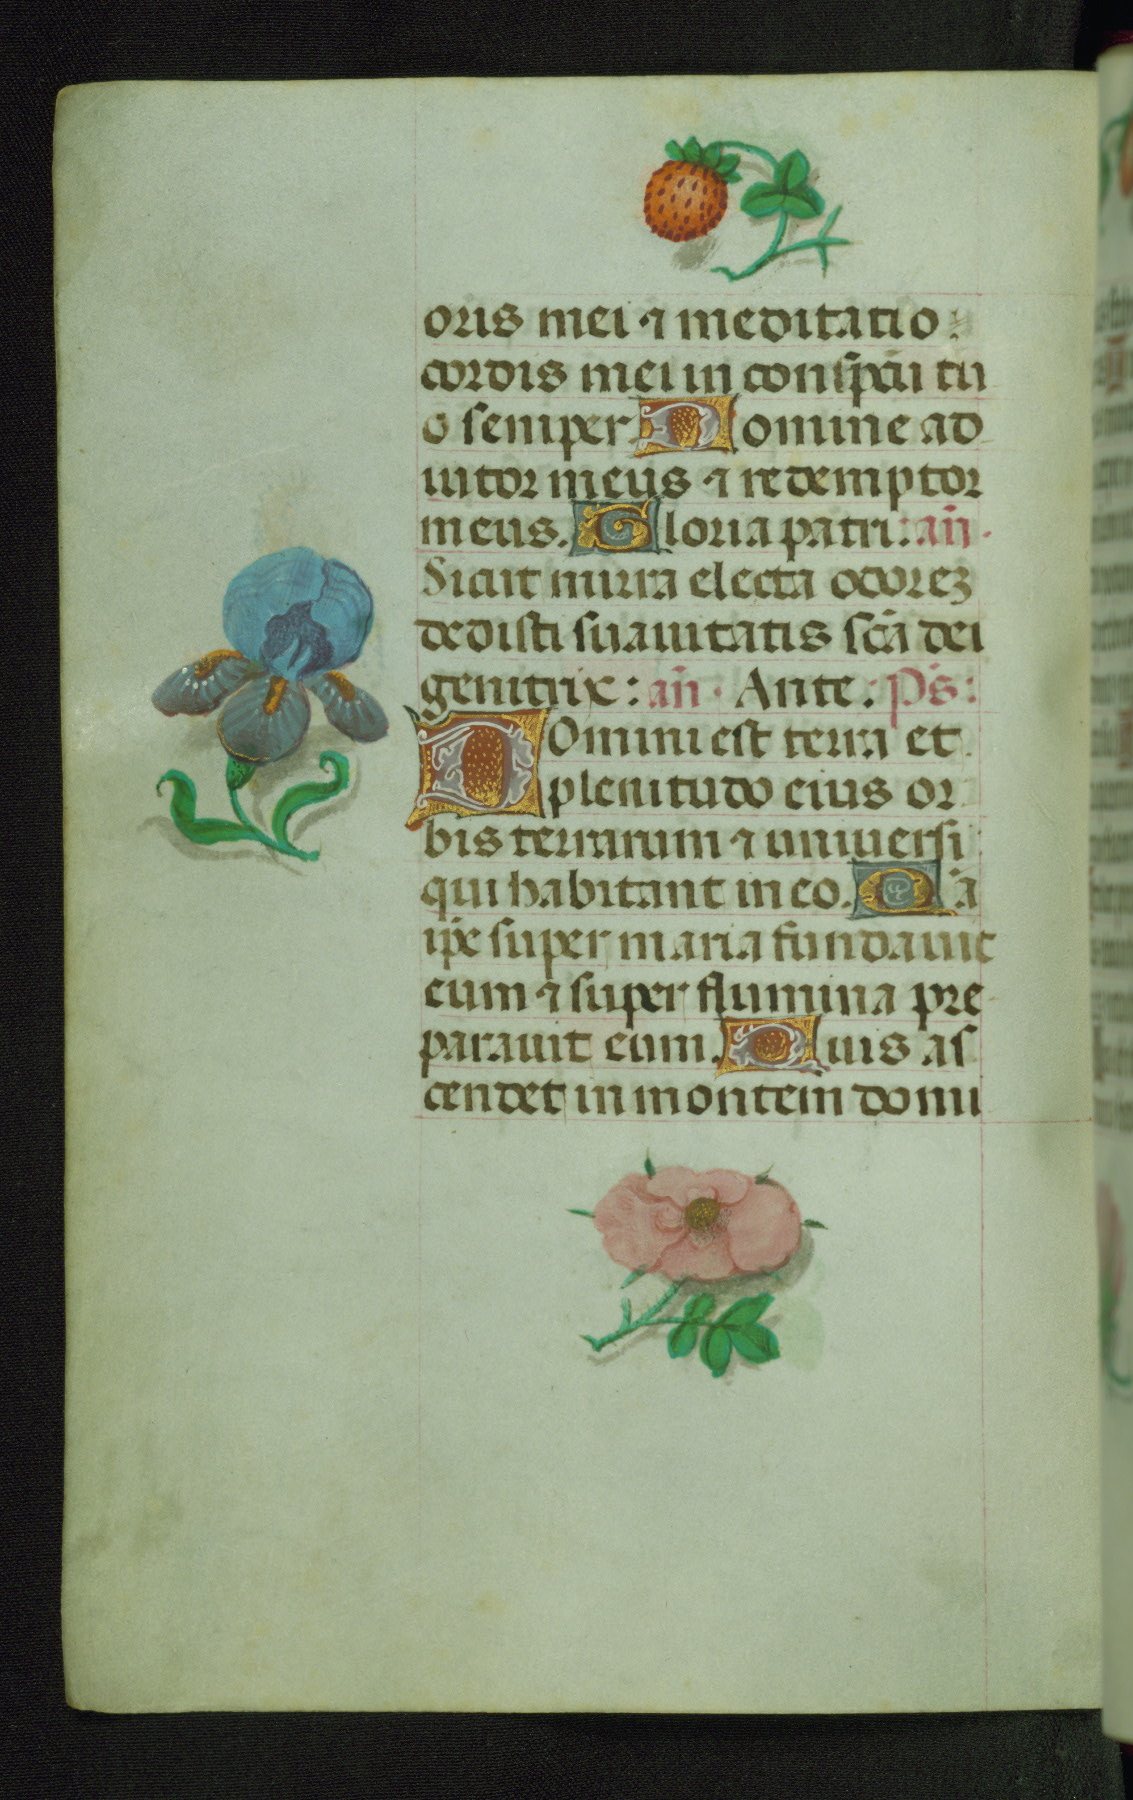 oris mei ⁊ meditatio:
cordis mei in conspc̄tu tu
o semper. Domine ad
iutor meus ⁊ redemptor
meus. Gloria patri: an̄.
Sicut mirra electa odorez
dedisti suauitatis sc̄a dei
genitrix: an̄. Ante: Ps̄:
Domini est terra et
plenitudo eius or
bis terrarum ⁊ uniuersi
qui habitant in eo. Q̄a
ip̄e super maria fundauit
eum ⁊ super flumina pre
parauit eum. Quis as
cendet in montem domi